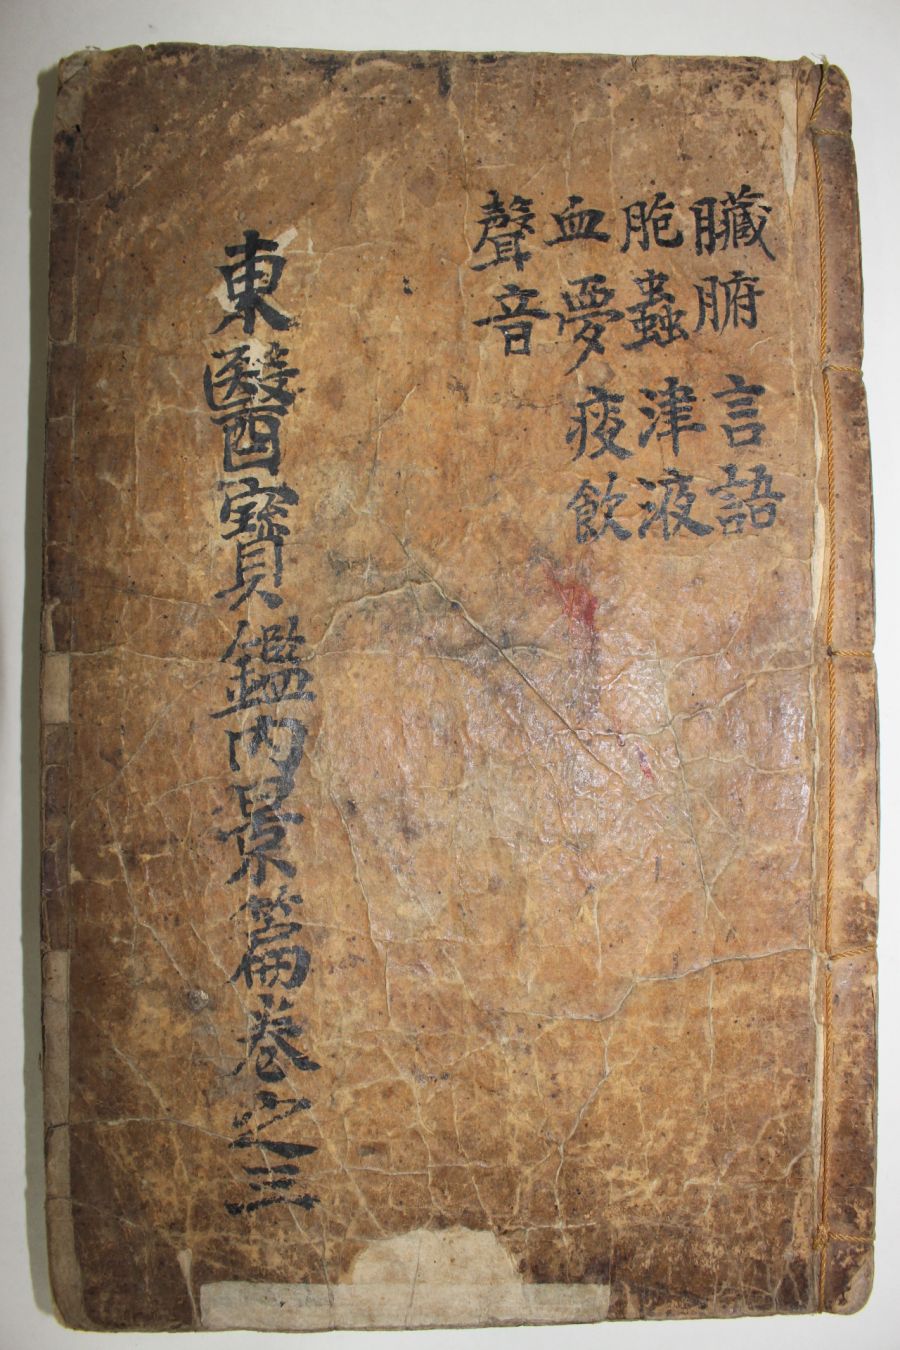 臟腑 言語
胞蟲 津液
血夢 疫飮
聲音
東醫寶鑑内景篇卷之三